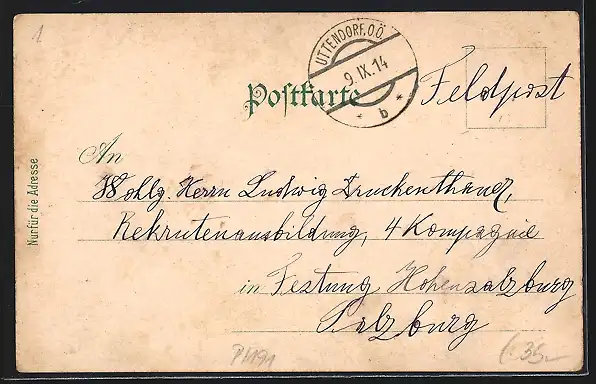 1
UTTENDORF, O.Ö.
9. IX. 14
* b *
Postkarte
Feldpost
Nur für die Adresse
An
Wohlg. Herrn Ludwig Druckenthaner,
Rekrutenausbildung, 4 Kompagnie
in Festung Hohensalzburg
Salzburg
35.-